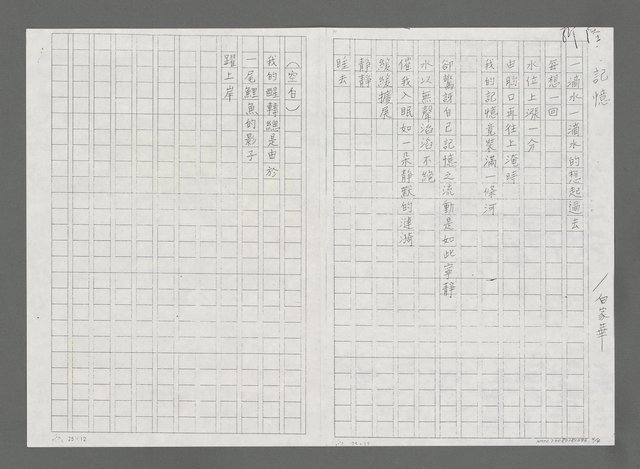 記憶
／白家華
一滴水一滴水的想起過去
每想一回
水位上漲一分
由胸口再往上淹時
我的記憶竟裝滿一條河
卻驚訝自己記憶之流動是如此寧靜
水以無聲滔滔不絕
催我入眠如一朵靜默的漣漪
緩緩擴展
靜靜
睡去
（空白）
我的醒轉總是由於
一尾鯉魚的影子
躍上岸
25×12
25×12